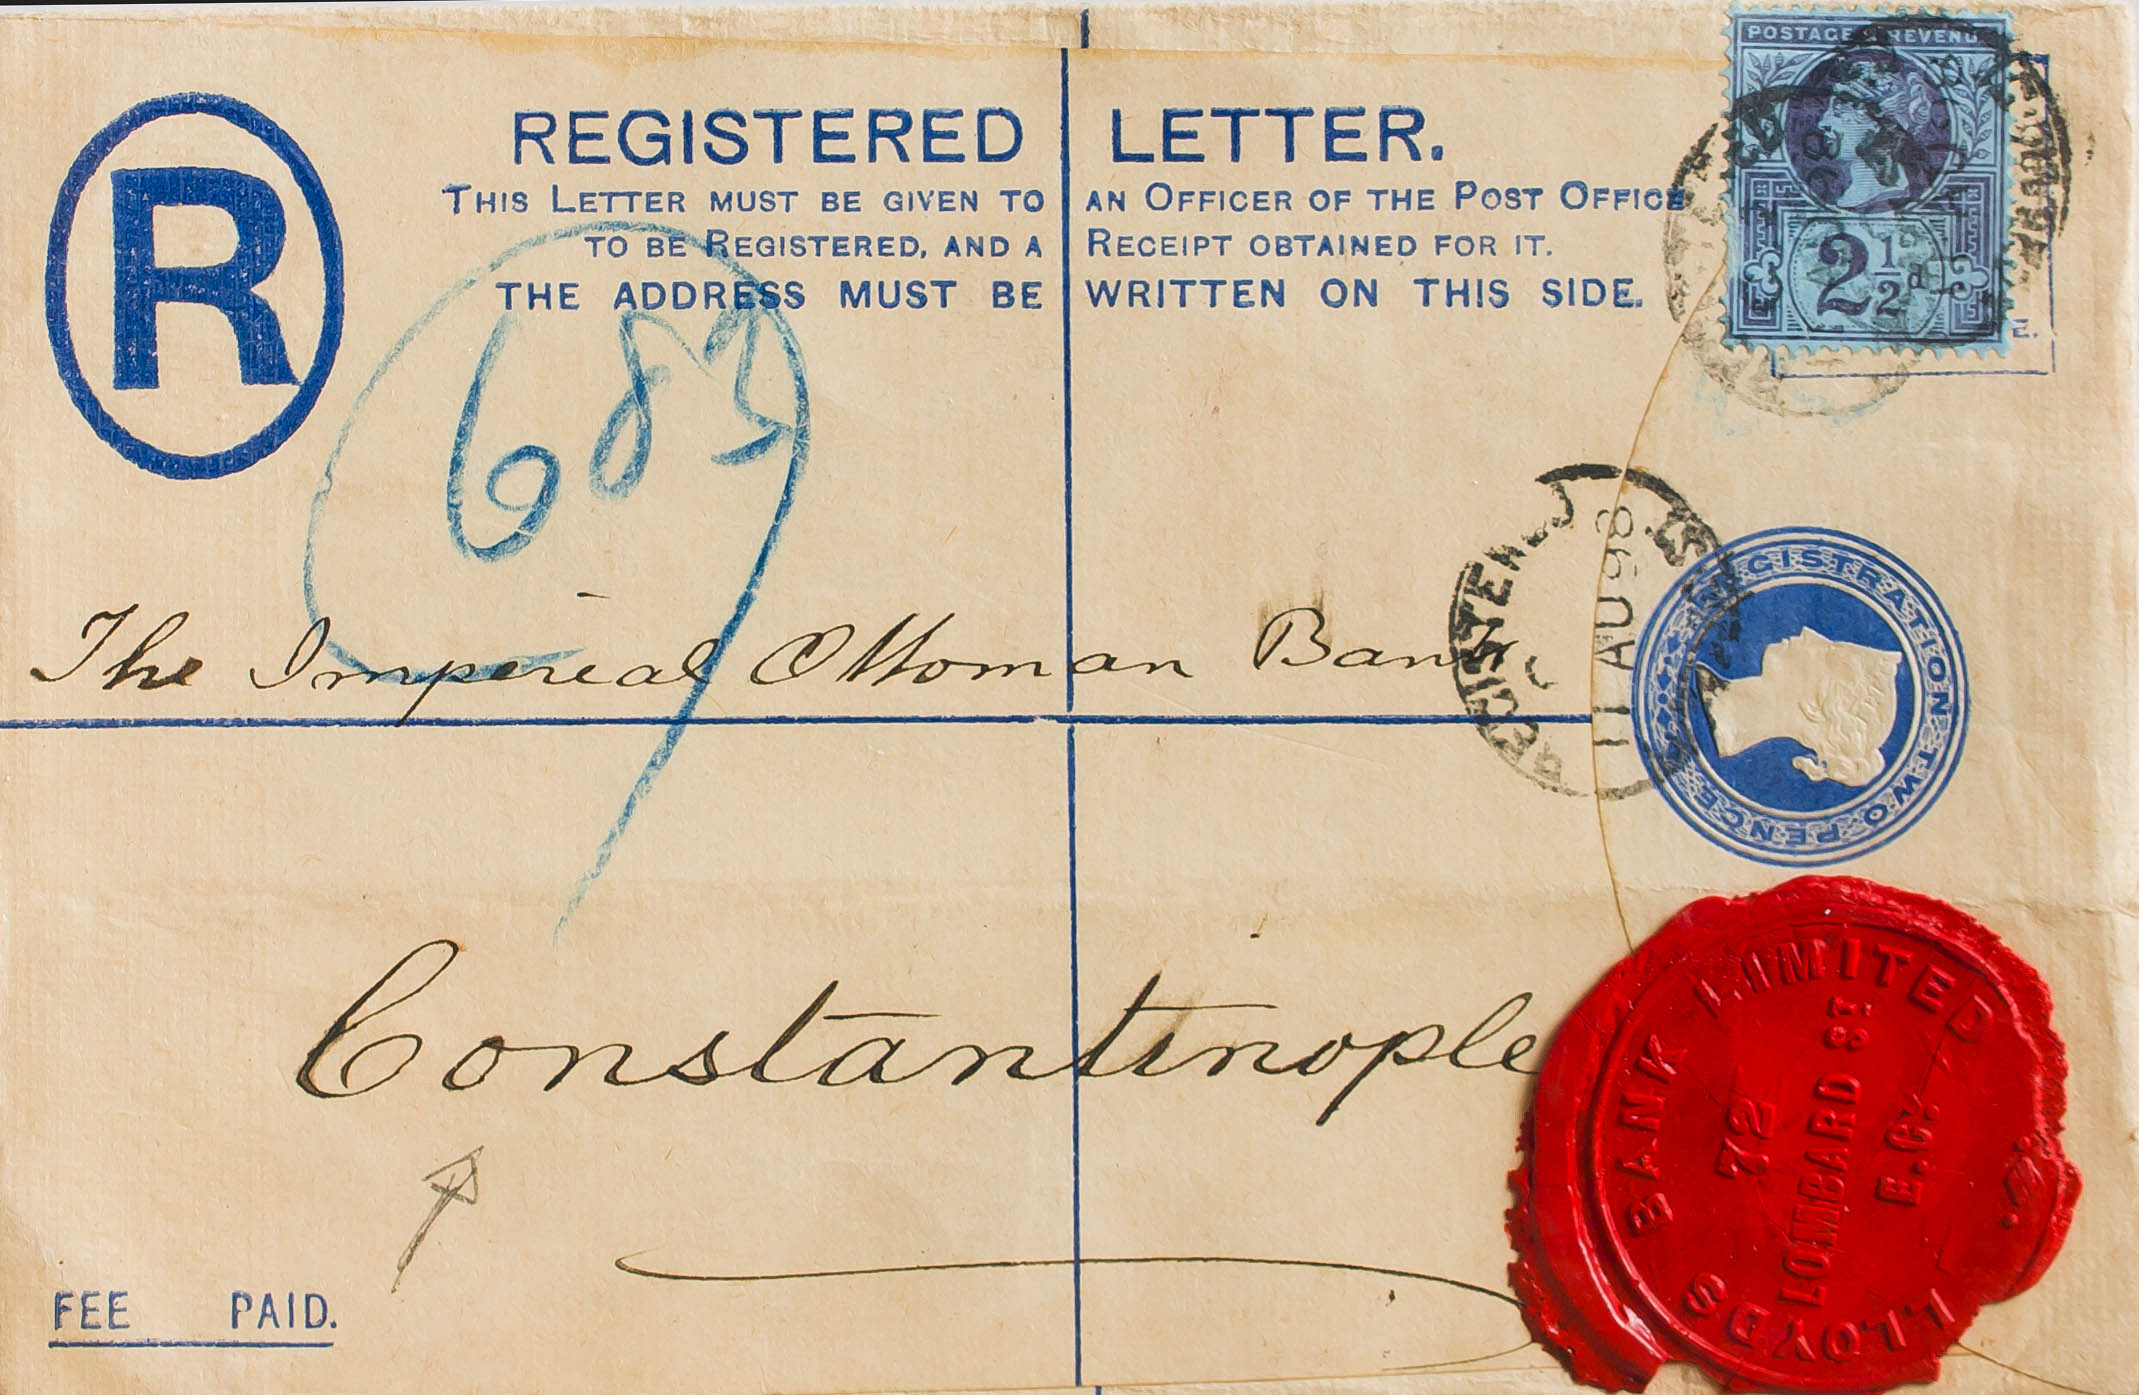 POSTAGE & REVENUE
2½d
R
REGISTERED LETTER.
THIS LETTER MUST BE GIVEN TO AN OFFICER OF THE POST OFFICE
TO BE REGISTERED, AND A RECEIPT OBTAINED FOR IT.
THE ADDRESS MUST BE WRITTEN ON THIS SIDE.
E.
683
REGISTERED
11 AU 98
REGISTRATION TWO PENCE
The Imperial Ottoman Bank
Constantinople
LLOYDS BANK LIMITED
72
LOMBARD ST
E.C.
FEE PAID.